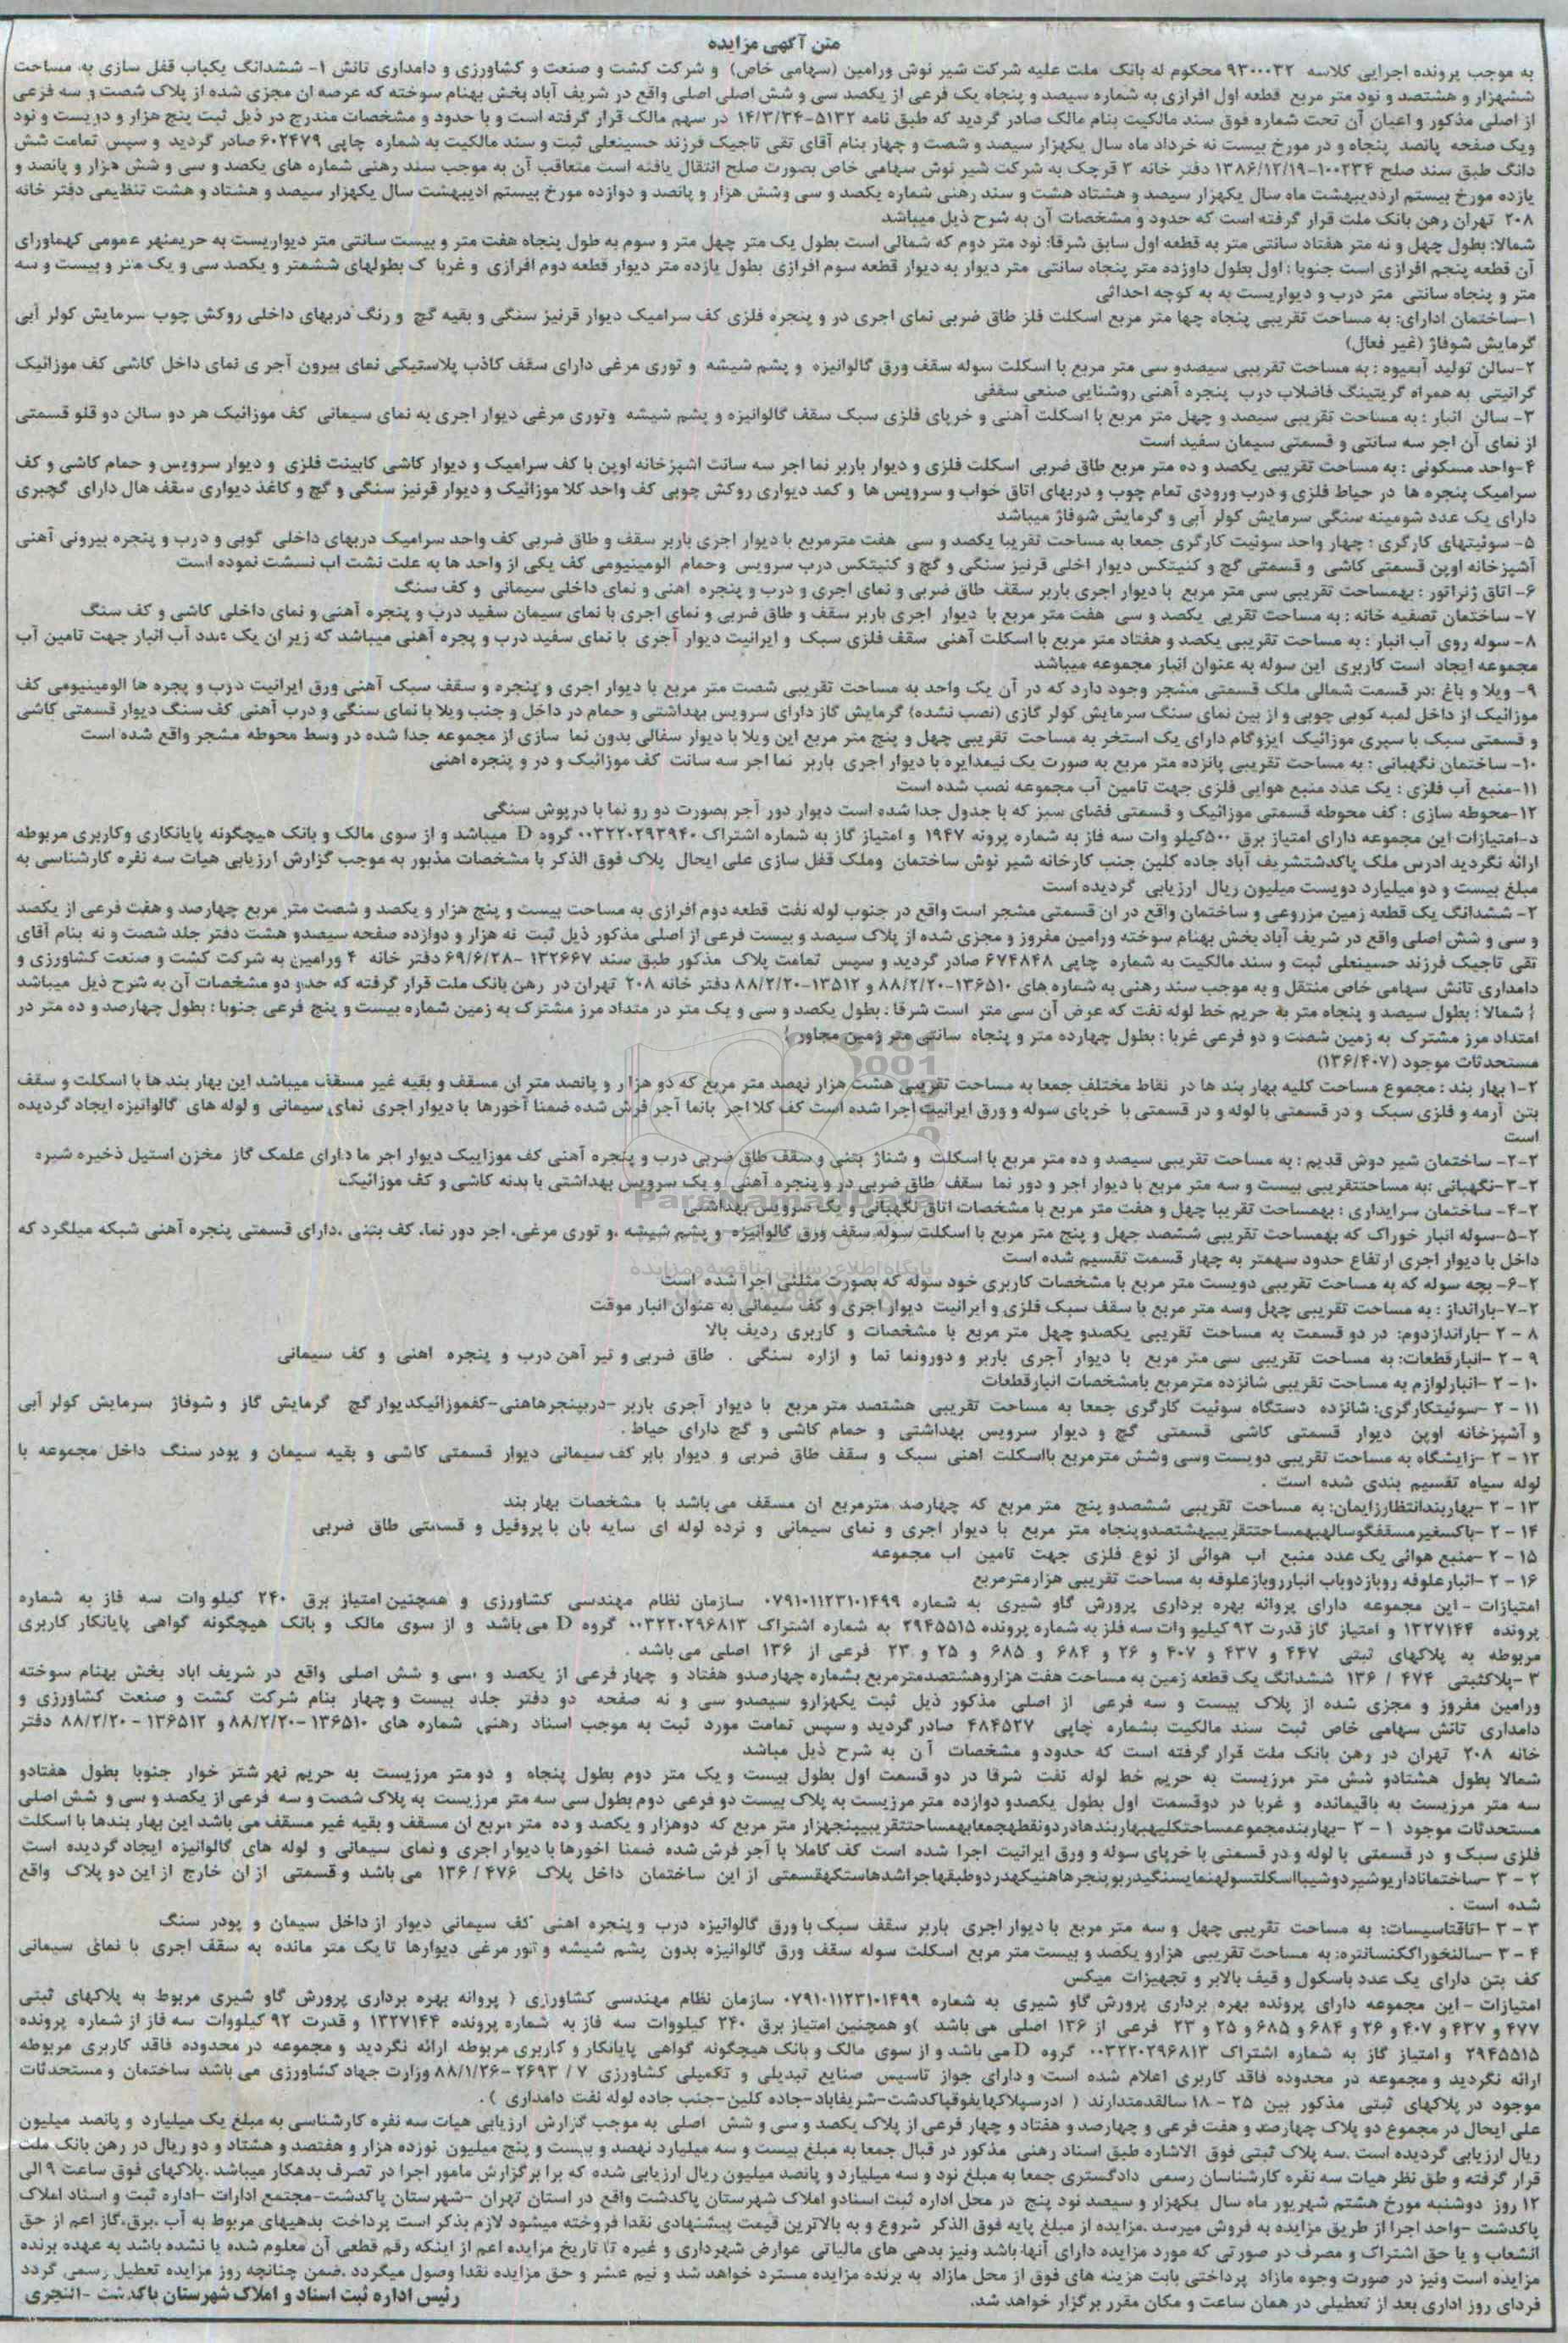 متن آگهی مزایده
به موجب پرونده اجرایی کلاسه ۹۳۰۰۰۳۲ محکوم له بانک ملت علیه شرکت شیر نوش ورامین (سهامی خاص) و شرکت کشت و صنعت و کشاورزی و دامداری تانش ۱- ششدانگ یکباب قفل سازی به مساحت
ششهزار و هشتصد و نود متر مربع قطعه اول افرازی به شماره سیصد و پنجاه یک فرعی از یکصد سی و شش اصلی اصلی واقع در شریف آباد بخش بهنام سوخته که عرصه ان مجزی شده از پلاک شصت و سه فرعی
از اصلی مذکور و اعیان آن تحت شماره فوق سند مالکیت بنام مالک صادر گردید که طبق نامه ۵۱۳۲-۱۴/۳/۳۴ در سهم مالک قرار گرفته است و با حدود و مشخصات مندرج در ذیل ثبت پنج هزار و دویست و نود
ویک صفحه پانصد پنجاه و در مورخ بیست نه خرداد ماه سال یکهزار سیصد و شصت و چهار بنام آقای تقی تاجیک فرزند حسینعلی ثبت و سند مالکیت به شماره چاپی ۶۰۲۴۷۹ صادر گردید و سپس تمامت شش
دانگ طبق سند صلح ۱۰۰۲۳۴-۱۳۸۶/۱۲/۱۹ دفتر خانه ۲ قرچک به شرکت شیر نوش سهامی خاص بصورت صلح انتقال یافته است متعاقب آن به موجب سند رهنی شماره های یکصد و سی و شش هزار و پانصد و
یازده مورخ بیستم ارددیبهشت ماه سال یکهزار سیصد و هشتاد هشت و سند رهنی شماره یکصد و سی وشش هزار و پانصد و دوازده مورخ بیستم ادیبهشت سال یکهزار سیصد و هشتاد و هشت تنظیمی دفتر خانه
۲۰۸ تهران رهن بانک ملت قرار گرفته است که حدود و مشخصات آن به شرح ذیل میباشد
شمالا: بطول چهل و نه متر هفتاد سانتی متر به قطعه اول سابق شرقا: نود متر دوم که شمالی است بطول یک متر چهل متر و سوم به طول پنجاه هفت متر و بیست سانتی متر دیواریست به حریمنهر عمومی کهماورای
آن قطعه پنجم افرازی است جنوبا : اول بطول داوزده متر پنجاه سانتی متر دیوار به دیوار قطعه سوم افرازی بطول یازده متر دیوار قطعه دوم افرازی و غربا ک بطولهای ششمتر و یکصد سی و یک متر و بیست و سه
متر و پنجاه سانتی متر درب و دیواریست به به کوچه احداثی
۱-ساختمان ادارای: به مساحت تقریبی پنجاه چها متر مربع اسکلت فلز طاق ضربی نمای اجری در و پنجره فلزی کف سرامیک دیوار قرنیز سنگی و بقیه گچ و رنگ دربهای داخلی روکش چوب سرمایش کولر آبی
گرمایش شوفاژ (غیر فعال)
۲-سالن تولید آبمیوه : به مساحت تقریبی سیصدو سی متر مربع با اسکلت سوله سقف ورق گالوانیزه و پشم شیشه و توری مرغی دارای سقف کاذب پلاستیکی نمای بیرون آجر ی نمای داخل کاشی کف موزائیک
گرانیتی به همراه گریتینگ فاضلاب درب پنجره آهنی روشنایی صنعی سقفی
۳- سالن انبار : به مساحت تقریبی سیصد و چهل متر مربع با اسکلت آهنی و خرپای فلزی سبک سقف گالوانیزه و پشم شیشه وتوری مرغی دیوار اجری به نمای سیمانی کف موزائیک هر دو سالن دو قلو قسمتی
از نمای آن اجر سه سانتی و قسمتی سیمان سفید است
۴-واحد مسکونی : به مساحت تقریبی یکصد و ده متر مربع طاق ضربی اسکلت فلزی و دیوار باربر نما اجر سه سانت اشپزخانه اوپن با کف سرامیک و دیوار کاشی کابینت فلزی و دیوار سرویس و حمام کاشی و کف
سرامیک پنجره ها در حیاط فلزی و درب ورودی تمام چوب و دربهای اتاق خواب و سرویس ها و کمد دیواری روکش چوبی کف واحد کلا موزائیک و دیوار قرنیز سنگی و گچ و کاغذ دیواری سقف هال دارای گچبری
دارای یک عدد شومینه سنگی سرمایش کولر آبی و گرمایش شوفاژ میباشد
۵- سوئیتهای کارگری : چهار واحد سوئیت کارگری جمعا به مساحت تقریبا یکصد و سی هفت مترمربع با دیوار اجری باربر سقف و طاق ضربی کف واحد سرامیک دربهای داخلی گوبی و درب و پنجره بیرونی آهنی
آشپزخانه اوپن قسمتی کاشی و قسمتی گچ و کنیتکس دیوار اخلی قرنیز سنگی و گچ و کنیتکس درب سرویس وحمام الومینیومی کف یکی از واحد ها به علت نشت اب نسشت نموده است
۶- اتاق ژنراتور : بهمساحت تقریبی سی متر مربع با دیوار اجری باربر سقف طاق ضربی و نمای اجری و درب و پنجره اهنی و نمای داخلی سیمانی و کف سنگ
۷- ساختمان تصفیه خانه : به مساحت تقریبی یکصد و سی هفت متر مربع با دیوار اجری باربر سقف و طاق ضربی و نمای اجری با نمای سیمان سفید درب و پنجره آهنی و نمای داخلی کاشی و کف سنگ
۸- سوله روی آب انبار : به مساحت تقریبی یکصد و هفتاد متر مربع با اسکلت آهنی سقف فلزی سبک و ایرانیت دیوار آجری با نمای سفید درب و پجره آهنی میباشد که زیر ان یک عدد آب انبار جهت تامین آب
مجموعه ایجاد است کاربری این سوله به عنوان انبار مجموعه میباشد
۹- ویلا و باغ :در قسمت شمالی ملک قسمتی مشجر وجود دارد که در آن یک واحد به مساحت تقریبی شصت متر مربع با دیوار اجری و پنجره و سقف سبک آهنی ورق ایرانیت درب و پجره ها الومینیومی کف
موزائیک از داخل لمبه کوبی چوبی و از بین نمای سنگ سرمایش کولر گازی (نصب نشده) گرمایش گاز دارای سرویس بهداشتی و حمام در داخل و جنب ویلا با نمای سنگی و درب آهنی کف سنگ دیوار قسمتی کاشی
و قسمتی سبک با سپری موزائیک ایزوگام دارای یک استخر به مساحت تقریبی چهل و پنج متر مربع این ویلا با دیوار سفالی بدون نما سازی از مجموعه جدا شده در وسط محوطه مشجر واقع شده است
۱۰- ساختمان نگهبانی : به مساحت تقریبی پانزده متر مربع به صورت یک نیمدایره با دیوار اجری باربر نما اجر سه سانت کف موزائیک و در و پنجره اهنی
۱۱-منبع آب فلزی : یک عدد منبع هوایی فلزی جهت تامین آب مجموعه نصب شده است
۱۲-محوطه سازی : کف محوطه قسمتی موزائیک و قسمتی فضای سبز که با جدول جدا شده است دیوار دور آجر بصورت دو رو نما با درپوش سنگی
د-امتیازات این مجموعه دارای امتیاز برق ۵۰۰کیلو وات سه فاز به شماره پرونه ۱۹۴۷ و امتیاز گاز به شماره اشتراک ۰۰۳۲۲۰۲۹۳۹۴۰ گروه D میباشد و از سوی مالک و بانک هیچگونه پایانکاری وکاربری مربوطه
ارائه نگردید ادرس ملک پاکدشتشریف آباد جاده کلین جنب کارخانه شیر نوش ساختمان وملک قفل سازی علی ایحال پلاک فوق الذکر با مشخصات مذبور به موجب گزارش ارزیابی هیات سه نفره کارشناسی به
مبلغ بیست و دو میلیارد دویست میلیون ریال ارزیابی گردیده است
۲- ششدانگ یک قطعه زمین مزروعی و ساختمان واقع در ان قسمتی مشجر است واقع در جنوب لوله نفت قطعه دوم افرازی به مساحت بیست و پنج هزار و یکصد و شصت متر مربع چهارصد و هفت فرعی از یکصد
و سی و شش اصلی واقع در شریف آباد بخش بهنام سوخته ورامین مفروز و مجزی شده از پلاک سیصد و بیست فرعی از اصلی مذکور ذیل ثبت نه هزار و دوازده صفحه سیصدو هشت دفتر جلد شصت و نه بنام آقای
تقی تاجیک فرزند حسینعلی ثبت و سند مالکیت به شماره چاپی ۶۷۴۸۴۸ صادر گردید و سپس تمامت پلاک مذکور طبق سند ۱۳۲۶۶۷ -۶۹/۶/۲۸ دفتر خانه ۴ ورامین به شرکت کشت و صنعت کشاورزی و
دامداری تانش سهامی خاص منتقل و به موجب سند رهنی به شماره های ۱۳۶۵۱۰-۸۸/۲/۲۰ و ۱۳۵۱۲-۸۸/۲/۲۰ دفتر خانه ۲۰۸ تهران در رهن بانک ملت قرار گرفته که حدو دو مشخصات آن به شرح ذیل میباشد
{ شمالا : بطول سیصد و پنجاه متر به حریم خط لوله نفت که عرض آن سی متر است شرقا : بطول یکصد و سی و یک متر در متداد مرز مشترک به زمین شماره بیست و پنج فرعی جنوبا : بطول چهارصد و ده متر در
امتداد مرز مشترک به زمین شصت و دو فرعی غربا : بطول چهارده متر و پنجاه سانتی متر زمین مجاور }
مستحدثات موجود (۱۳۶/۴۰۷)
۱-۲ بهار بند : مجموع مساحت کلیه بهار بند ها در نقاط مختلف جمعا به مساحت تقریبی هشت هزار نهصد متر مربع که دو هزار و پانصد متر ان مسقف و بقیه غیر مسقف میباشد این بهار بند ها با اسکلت و سقف
بتن آرمه و فلزی سبک و در قسمتی با لوله و در قسمتی با خرپای سوله و ورق ایرانیت اجرا شده است کف کلا اجر بانما آجر فرش شده ضمنا آخورها با دیوار اجری نمای سیمانی و لوله های گالوانیزه ایجاد گردیده
است
۲-۲- ساختمان شیر دوش قدیم : به مساحت تقریبی سیصد و ده متر مربع با اسکلت و شناژ بتنی و سقف طاق ضربی درب و پنجره آهنی کف موزاییک دیوار اجر ما دارای علمک گاز مخزن استیل ذخیره شیره
۲-۳-نگهبانی :به مساحتتقریبی بیست و سه متر مربع با دیوار اجر و دور نما سقف طاق ضربی در و پنجره آهنی و یک سرویس بهداشتی با بدنه کاشی و کف موزائیک
۲-۴- ساختمان سرایداری : بهمساحت تقریبا چهل و هفت متر مربع با مشخصات اتاق نگهبانی و یک سرویس بهداشتی
۲-۵-سوله انبار خوراک که بهمساحت تقریبی ششصد چهل و پنج متر مربع با اسکلت سوله سقف ورق گالوانیزه و پشم شیشه ،و توری مرغی، اجر دور نما، کف بتنی ،دارای قسمتی پنجره آهنی شبکه میلگرد که
داخل با دیوار اجری ارتفاع حدود سهمتر به چهار قسمت تقسیم شده است
۲-۶- بچه سوله که به مساحت تقریبی دویست متر مربع با مشخصات کاربری خود سوله که بصورت مثلثی اجرا شده است
۲-۷-بارانداز : به مساحت تقریبی چهل وسه متر مربع با سقف سبک فلزی و ایرانیت دیوار اجری و کف سیمانی به عنوان انبار موقت
۸ - ۲ -باراندازدوم: در دو قسمت به مساحت تقریبی یکصدو چهل متر مربع با مشخصات و کاربری ردیف بالا
۹ - ۲ -انبارقطعات: به مساحت تقریبی سی متر مربع با دیوار آجری باربر و دورونما نما و ازاره سنگی . طاق ضربی و تیر آهن درب و پنجره اهنی و کف سیمانی
۱۰ - ۲ -انبارلوازم به مساحت تقریبی شانزده مترمربع بامشخصات انبارقطعات
۱۱ - ۲ -سوئیتکارگری: شانزده دستگاه سوئیت کارگری جمعا به مساحت تقریبی هشتصد متر مربع با دیوار آجری باربر -دربپنجرهاهنی-کفموزائیکدیوار گچ گرمایش گاز و شوفاژ سرمایش کولر آبی
و آشپزخانه اوپن دیوار قسمتی کاشی قسمتی گچ و دیوار سرویس بهداشتی و حمام کاشی و گچ دارای حیاط .
۱۲ - ۲ -زایشگاه به مساحت تقریبی دویست وسی وشش مترمربع بااسکلت اهنی سبک و سقف طاق ضربی و دیوار بابر کف سیمانی دیوار قسمتی کاشی و بقیه سیمان و پودر سنگ داخل مجموعه با
لوله سیاه تقسیم بندی شده است .
۱۳ - ۲ -بهاربندانتظارزایمان: به مساحت تقریبی ششصدو پنج متر مربع که چهارصد مترمربع ان مسقف می باشد با مشخصات بهار بند
۱۴ - ۲ -باکسغیرمسقفگوسالهبهمساحتتقریبیهشتصدوپنجاه متر مربع با دیوار اجری و نمای سیمانی و نرده لوله ای سایه بان با پروفیل و قسمتی طاق ضربی
۱۵ - ۲ -منبع هوائی یک عدد منبع اب هوائی از نوع فلزی جهت تامین اب مجموعه
۱۶ - ۲ -انبارعلوفه روبازدوباب انبارروبازعلوفه به مساحت تقریبی هزارمترمربع
امتیازات - این مجموعه دارای پروانه بهره برداری پرورش گاو شیری به شماره ۰۷۹۱۰۱۱۲۳۱۰۱۴۹۹ سازمان نظام مهندسی کشاورزی و همچنین امتیاز برق ۲۴۰ کیلو وات سه فاز به شماره
پرونده ۱۳۲۷۱۴۴ و امتیاز گاز قدرت ۹۲ کیلیو وات سه فلز به شماره پرونده ۲۹۴۵۵۱۵ به شماره اشتراک ۰۰۳۲۲۰۲۹۶۸۱۳ گروه D می باشد و از سوی مالک و بانک هیچگونه گواهی پایانکار کاربری
مربوطه به پلاکهای ثبتی ۴۴۷ و ۴۳۷ و ۴۰۷ و ۲۶ و ۶۸۴ و ۶۸۵ و ۲۵ و ۲۳ فرعی از ۱۳۶ اصلی می باشد .
۳ -پلاکثبتی ۴۷۴ / ۱۳۶ ششدانگ یک قطعه زمین به مساحت هفت هزاروهشتصدمترمربع بشماره چهارصدو هفتاد و چهار فرعی از یکصد و سی و شش اصلی واقع در شریف اباد بخش بهنام سوخته
ورامین مفروز و مجزی شده از پلاک بیست و سه فرعی از اصلی مذکور ذیل ثبت یکهزارو سیصدو سی و نه صفحه دو دفتر جلد بیست و چهار بنام شرکت کشت و صنعت کشاورزی و
دامداری تانش سهامی خاص ثبت سند مالکیت بشماره چاپی ۴۸۴۵۲۷ صادر گردید و سپس تمامت مورد ثبت به موجب اسناد رهنی شماره های ۱۳۶۵۱۰ -۸۸/۲/۲۰ و ۱۳۶۵۱۲ - ۸۸/۲/۲۰ دفتر
خانه ۲۰۸ تهران در رهن بانک ملت قرار گرفته است که حدود و مشخصات آن به شرح ذیل مباشد
شمالا بطول هشتادو شش متر مرزیست به حریم خط لوله نفت شرقا در دو قسمت اول بطول بیست و یک متر دوم بطول پنجاه و دو متر مرزیست به حریم نهر شتر خوار جنوبا بطول هفتادو
سه متر مرزیست به باقیمانده و غربا در دوقسمت اول بطول یکصدو دوازده متر مرزیست به پلاک بیست دو فرعی دوم بطول سی سه متر مرزیست به پلاک شصت و سه فرعی از یکصد و سی و شش اصلی
مستحدثات موجود ۱ - ۳ -بهاربندمجموعمساحتکلیهبهاربندهادردونقطهجمعابهمساحتتقریبیپنجهزار متر مربع که دوهزار و یکصد و ده متر مربع ان مسقف و بقیه غیر مسقف می باشد این بهار بندها با اسکلت
فلزی سبک و در قسمتی با لوله و در قسمتی با خرپای سوله و ورق ایرانیت اجرا شده است کف کاملا با آجر فرش شده ضمنا اخورها با دیوار اجری و نمای سیمانی و لوله های گالوانیزه ایجاد گردیده است
۲ - ۳ -ساختماناداریوشیردوشیبااسکلتسولهنمایسنگیدربوپنجرهاهنیکهدردوطبقهاجراشدهاستکهقسمتی از این ساختمان داخل پلاک ۴۷۶ / ۱۳۶ می باشد و قسمتی از ان خارج از این دو پلاک واقع
شده است .
۳ - ۳ -اتاقتاسیسات: به مساحت تقریبی چهل و سه متر مربع با دیوار اجری باربر سقف سبک با ورق گالوانیزه درب و پنجره اهنی کف سیمانی دیوار از داخل سیمان و پودر سنگ
۴ - ۳ -سالنخوراککنسانتره: به مساحت تقریبی هزارو یکصد و بیست متر مربع اسکلت سوله سقف ورق گالوانیزه بدون پشم شیشه و تور مرغی دیوارها تا یک متر مانده به سقف اجری با نمای سیمانی
کف بتن دارای یک عدد باسکول و قیف بالابر و تجهیزات میکس
امتیازات - این مجموعه دارای پرونده بهره برداری پرورش گاو شیری به شماره ۰۷۹۱۰۱۱۲۳۱۰۱۴۹۹ سازمان نظام مهندسی کشاورزی ( پروانه بهره برداری پرورش گاو شیری مربوط به پلاکهای ثبتی
۴۷۷ و ۴۳۷ و ۴۰۷ و ۲۶ و ۶۸۴ و ۶۸۵ و ۲۵ و ۲۳ فرعی از ۱۳۶ اصلی می باشد )و همچنین امتیاز برق ۲۴۰ کیلووات سه فاز به شماره پرونده ۱۳۲۷۱۴۴ و قدرت ۹۲ کیلووات سه فاز از شماره پرونده
۲۹۴۵۵۱۵ و امتیاز گاز به شماره اشتراک ۰۰۳۲۲۰۲۹۶۸۱۳ گروه D می باشد و از سوی مالک و بانک هیچگونه گواهی پایانکار و کاربری مربوطه ارائه نگردید و مجموعه در محدوده فاقد کاربری مربوطه
ارائه نگردید و مجموعه در محدوده فاقد کاربری اعلام شده است و دارای جواز تاسیس صنایع تبدیلی و تکمیلی کشاورزی ۷ / ۲۶۹۳ -۸۸/۱/۲۶ وزارت جهاد کشاورزی می باشد ساختمان و مستحدثات
موجود در پلاکهای ثبتی مذکور بین ۲۵ - ۱۸ سالقدمتدارند ( ادرسپلاکهایفوقپاکدشت-شریفاباد-جاده کلین-جنب جاده لوله نفت دامداری ) .
علی ایحال در مجموع دو پلاک چهارصد و هفت فرعی و چهارصد و هفتاد و چهار فرعی از پلاک یکصد و سی و شش اصلی به موجب گزارش ارزیابی هیات سه نفره کارشناسی به مبلغ یک میلیارد و پانصد میلیون
ریال ارزیابی گردیده است .سه پلاک ثبتی فوق الاشاره طبق اسناد رهنی مذکور در قبال جمعا به مبلغ بیست و سه میلیارد نهصد و بیست و پنج میلیون نوزده هزار و هفتصد و هشتاد و دو ریال در رهن بانک ملت
قرار گرفته و طق نظر هیات سه نفره کارشناسان رسمی دادگستری جمعا به مبلغ نود و سه میلیارد و پانصد میلیون ریال ارزیابی شده که برا بر گزارش مامور اجرا در تصرف بدهکار میباشد .پلاکهای فوق ساعت ۹ الی
۱۲ روز دوشنبه مورخ هشتم شهریور ماه سال یکهزار و سیصد نود پنج در محل اداره ثبت اسنادو املاک شهرستان پاکدشت واقع در استان تهران -شهرستان پاکدشت-مجتمع ادارات -اداره ثبت و اسناد املاک
پاکدشت -واحد اجرا از طریق مزایده به فروش میرسد .مزایده از مبلغ پایه فوق الذکر شروع و به بالاترین قیمت پیشنهادی نقدا فروخته میشود لازم بذکر است پرداخت بدهیهای مربوط به آب ،برق،گاز اعم از حق
انشعاب و یا حق اشتراک و مصرف در صورتی که مورد مزایده دارای آنها باشد ونیز بدهی های مالیاتی عوارض شهرداری و غیره تا تاریخ مزایده اعم از اینکه رقم قطعی آن معلوم شده یا نشده باشد به عهده برنده
مزایده است ونیز در صورت وجوه مازاد پرداختی بابت هزینه های فوق از محل مازاد به برنده مزایده مسترد خواهد شد و نیم عشر و حق مزایده نقدا وصول میگردد .ضمن چنانچه روز مزایده تعطیل رسمی گردد
فردای روز اداری بعد از تعطیلی در همان ساعت و مکان مقرر برگزار خواهد شد.
رئیس اداره ثبت اسناد و املاک شهرستان پاکدشت -
ParaNamadData
پایگاه اطلاع رسانی مناقصه و مزایده